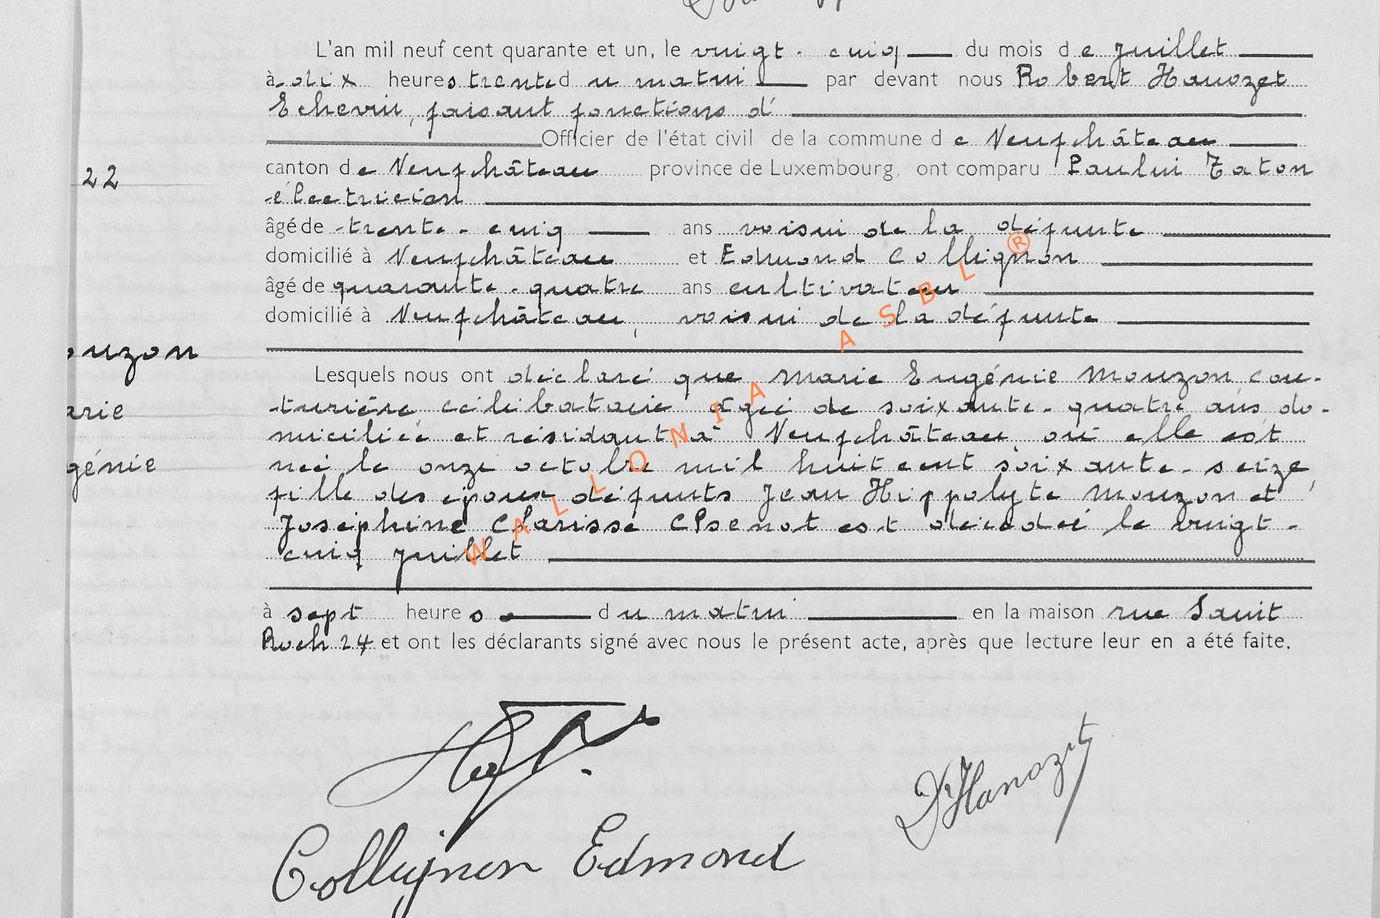 L'an mil neuf cent quarante et un, le vingt-cinq du mois de juillet
à dix heures trente du matin par devant nous Robert Hanozet
Echevin, faisant fonctions d'
Officier de l'état civil de la commune de Neufchâteau
canton de Neufchâteau province de Luxembourg, ont comparu Paulin Taton
22
électricien
âgé de trente-cinq ans voisin de la défunte
domicilié à Neufchâteau et Edmond Collignon
âgé de quarante-quatre ans cultivateur
domicilié à Neufchâteau, voisin de la défunte
ouzon
Lesquels nous ont déclaré que Marie Eugénie Mouzon cou-
arie
turière célibataire âgée de soixante-quatre ans do-
miciliée et résidant à Neufchâteau où elle est
génie
née le onze octobre mil huit cent soixante-seize,
fille des époux défunts Jean Hippolyte Mouzon et
Joséphine Clarisse est décédée le vingt-
cinq juillet
à sept heures du matin en la maison rue Saint
Roch 24 et ont les déclarants signé avec nous le présent acte, après que lecture leur en a été faite.
WALLONIA ASBL ®
Dr Hanozet
Collignon Edmond